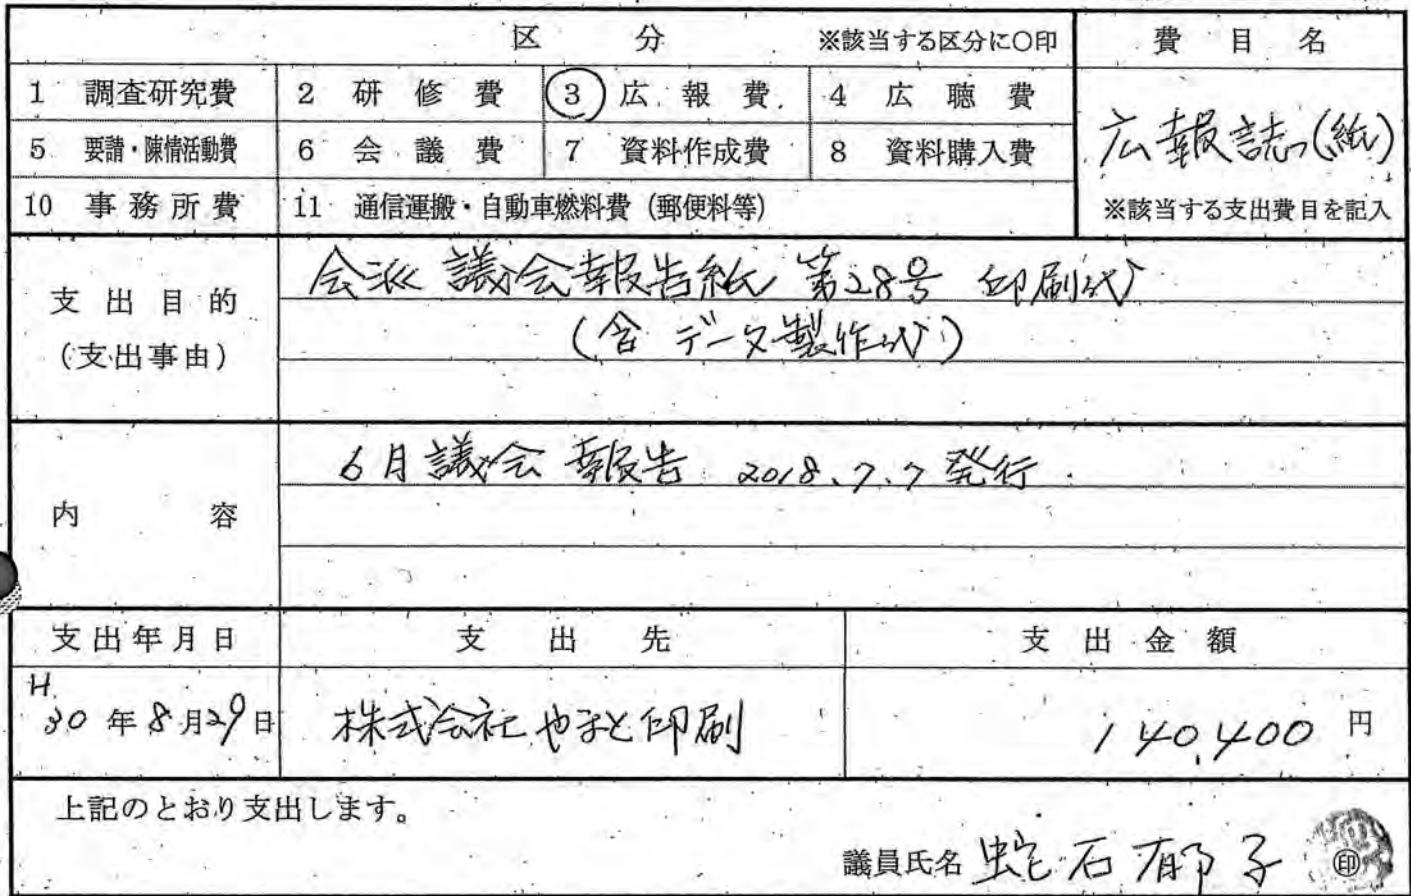 区 分 ※該当する区分に○印 費 目 名
1 調査研究費 2 研 修 費 3 広 報 費 4 広 聴 費
広報誌(紙)
5 要請・陳情活動費 6 会 議 費 7 資料作成費 8 資料購入費
10 事務所費 11 通信運搬・自動車燃料費(郵便料等) ※該当する支出費目を記入
支出目的
(支出事由)
会派 議会報告紙 第28号 印刷代
(含 データ製作代)
内 容
6月議会 報告 2018.7.7 発行
支出年月日 支 出 先 支 出 金 額
H.30年8月29日 株式会社やまと印刷 140,400円
上記のとおり支出します。
議員氏名 蛇石郁子 ㊞